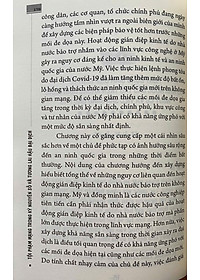 công dân, các cơ quan, tổ chức chính phủ đang ngày
càng hướng tầm nhìn vượt ra ngoài biên giới của mình
để xây dựng các biện pháp bảo vệ tốt hơn trước những
mối đe dọa này. Hoạt động gián điệp kinh tế do nhà
nước bảo trợ nhắm vào các lĩnh vực công nghệ ở Mỹ
gây ra nguy cơ đáng kể cho an ninh kinh tế và an ninh
quốc gia của nước Mỹ. Việc thực hiện lệnh phong tỏa
do đại dịch Covid-19 đã làm tăng thêm mức độ bất ổn,
lỗ hổng và thách thức an ninh quốc gia mới trên không
gian mạng. Để có thể giảm thiểu các mối đe dọa gia
tăng trong thời kỳ đại dịch, chính phủ, khu vực công
và tư nhân của nước Mỹ phải có khả năng ứng phó với
một mức độ sẵn sàng nhất định.
Chương này cố gắng cung cấp một cái nhìn sâu
sắc hơn về một chủ đề phức tạp có ảnh hưởng rộng lớn
đến an ninh quốc gia trong những thời điểm bất
thường. Nội dung của chương hướng đến xây dựng
hiểu biết tổng thể về những nguy cơ liên quan đến hoạt
động gián điệp kinh tế do nhà nước bảo trợ trên không
gian mạng. Mỹ và đồng minh là các nước công nghiệp
tiên tiến phải nhận thức được hậu quả của hoạt
động gián điệp kinh tế do nhà nước bảo trợ mà phần
lớn được thực hiện trong lĩnh vực mạng. Hơn nữa, việc
xây dựng khả năng sẵn sàng trong thời gian xảy ra đại
dịch là điều tối quan trọng để có khả năng ứng phó với
các mối đe dọa đang nổi lên trên không gian mạng.
Do tính chất nhạy cảm của chủ đề này, thông tin được
TỘI PHẠM MẠNG TRONG KỶ NGUYÊN SỐ VÀ TƯƠNG LAI HẬU ĐẠI DỊCH